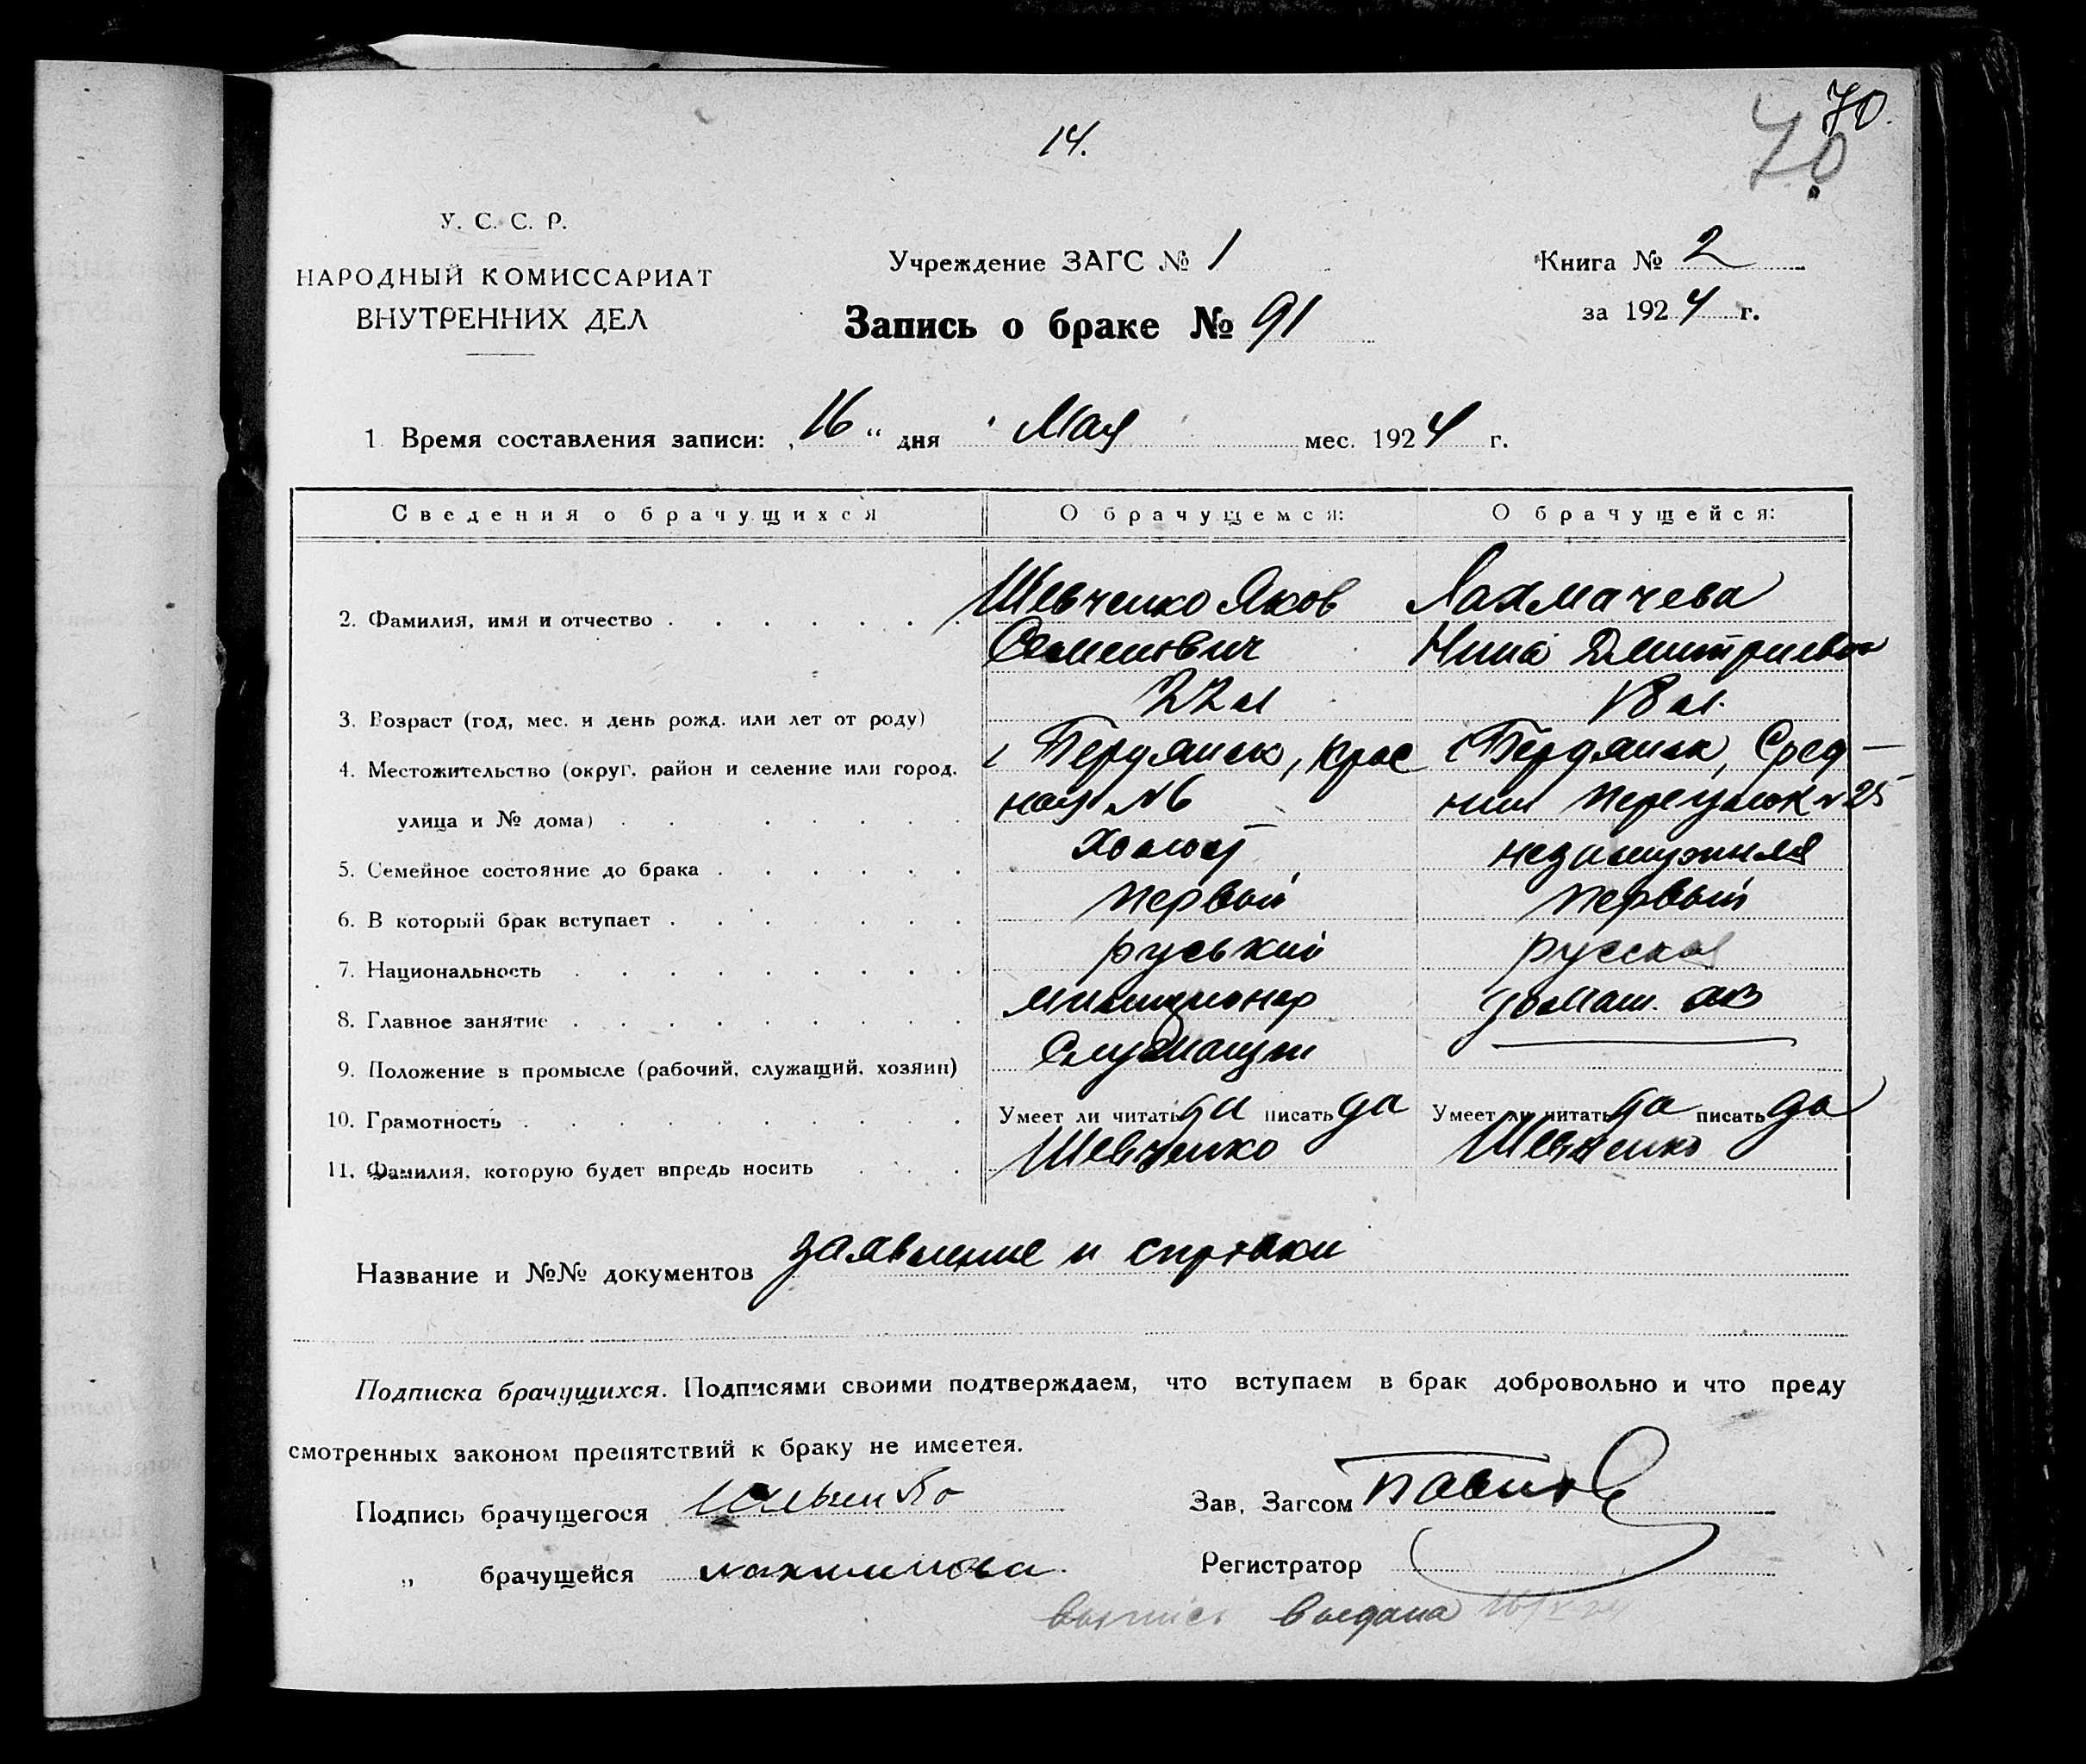 70.
14.
70
У. С. С. Р.
НАРОДНЫЙ КОМИССАРИАТ
ВНУТРЕННИХ ДЕЛ
Учреждение ЗАГС № 1
Книга № 2
Запись о браке № 91
за 1924 г.
1 Время составления записи: „16“ дня Мая мес. 1924 г.
Сведения о брачущихся О брачущемся: О брачущейся:
2. Фамилия, имя и отчество Шевченко Яков Лахмачева
Семенович Нина Дмитриевна
3. Возраст (год, мес. и день рожд. или лет от роду) 22 л 18 л.
4. Местожительство (округ, район и селение или город, г Бердянск, Крас г Бердянск, Сред—
улица и № дома) ная №6 ний переулок №25
5. Семейное состояние до брака Холост незамужняя
6. В который брак вступает первый первый
7. Национальность руський русская
8. Главное занятие милиционер домаш. хоз
9. Положение в промысле (рабочий, служащий, хозяин) Служащий
10. Грамотность Умеет ли читать да писать да Умеет ли читать да писать да
11. Фамилия, которую будет впредь носить Шевченко Шевченко
Название и №№ документов заявление и справки
Подписка брачущихся. Подписями своими подтверждаем, что вступаем в брак добровольно и что преду
смотренных законом препятствий к браку не имеется.
Подпись брачущегося Шевченко Зав. Загсом
„ брачущейся Регистратор
выпись выдана 16/V 24